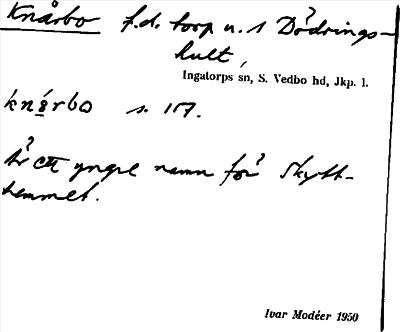 Knårbo f.d. torp u. 1 Dödrings-
hult,
Ingatorps sn, S. Vedbo hd, Jkp. l.
knå̱rbo s. 157.
är ett yngre namn för Skytt-
hemmet.
Ivar Modéer 1950